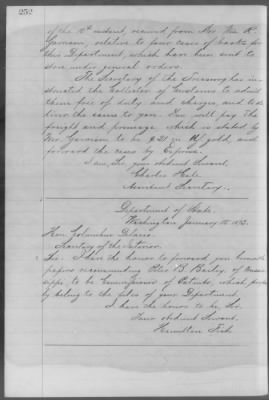 252
of the 10th instant, received from Mr. Wm. R.
Garrison, relative to four cases of books for
this Department, which have been sent to
store under general orders.
The Secretary of the Treasury has in-
structed the Collector of Customs to admit
them free of duty and charges, and to de-
liver the same to you. You will pay the
freight and primage which is stated by
Mr. Garrison to be $21 in gold, and
forward the cases by Express.
I am, Sir, your obedient Servant,
Charles Hale
Assistant Secretary.
Department of State,
Washington January 15, 1872.
Hon. Columbus Delano
Secretary of the Interior.
Sir. I have the honor to forward you herewith
papers recommending B. Bailey, of Missi
ssippi, to be Commissioner of Patents, which prop
erly belong to the files of your Department.
I have the honor to be, Sir,
Your obedient Servant,
Hamilton Fish